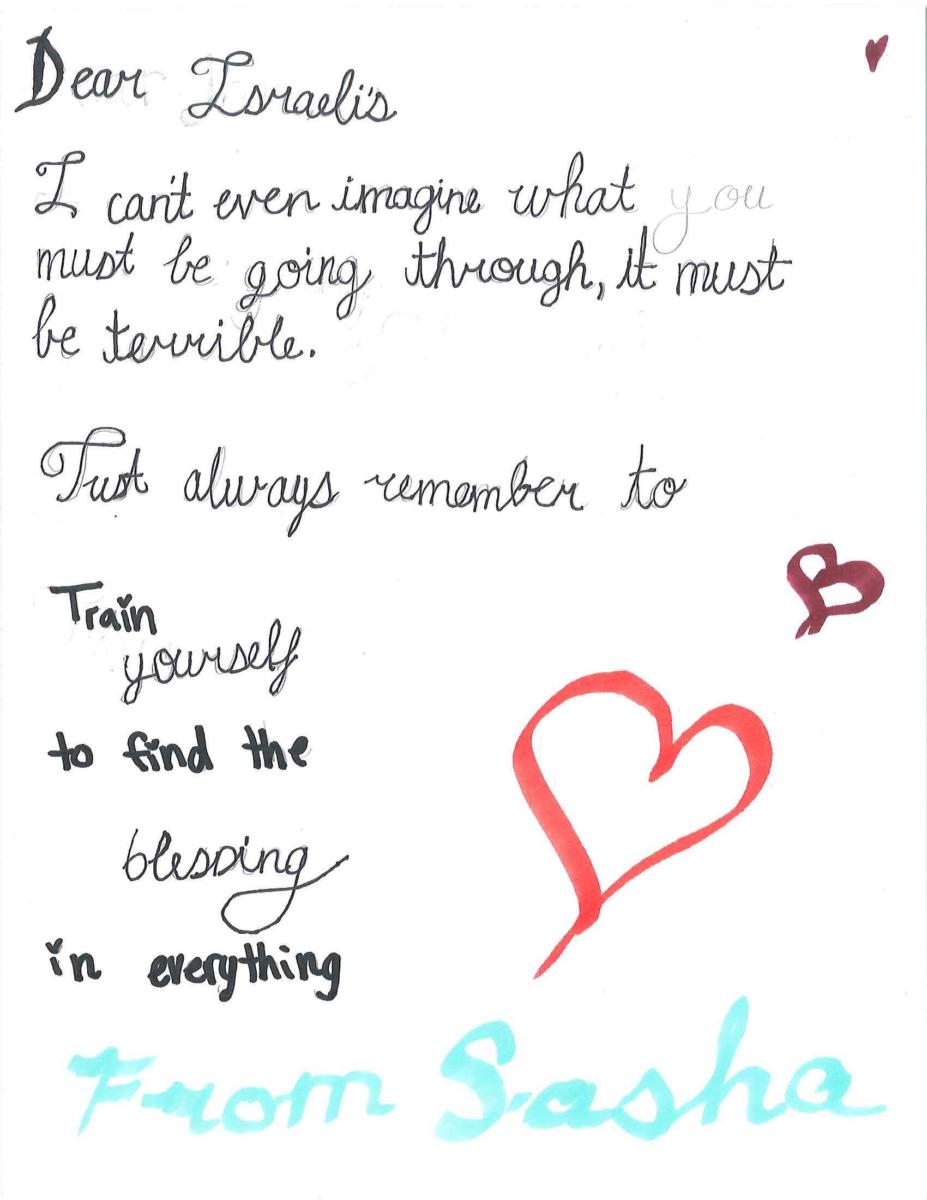 Dear Israeli's
I can't even imagine what you
must be going through, it must
be terrible.
Just always remember to
Train
yourself
to find the
blessing
in everything
From Sasha